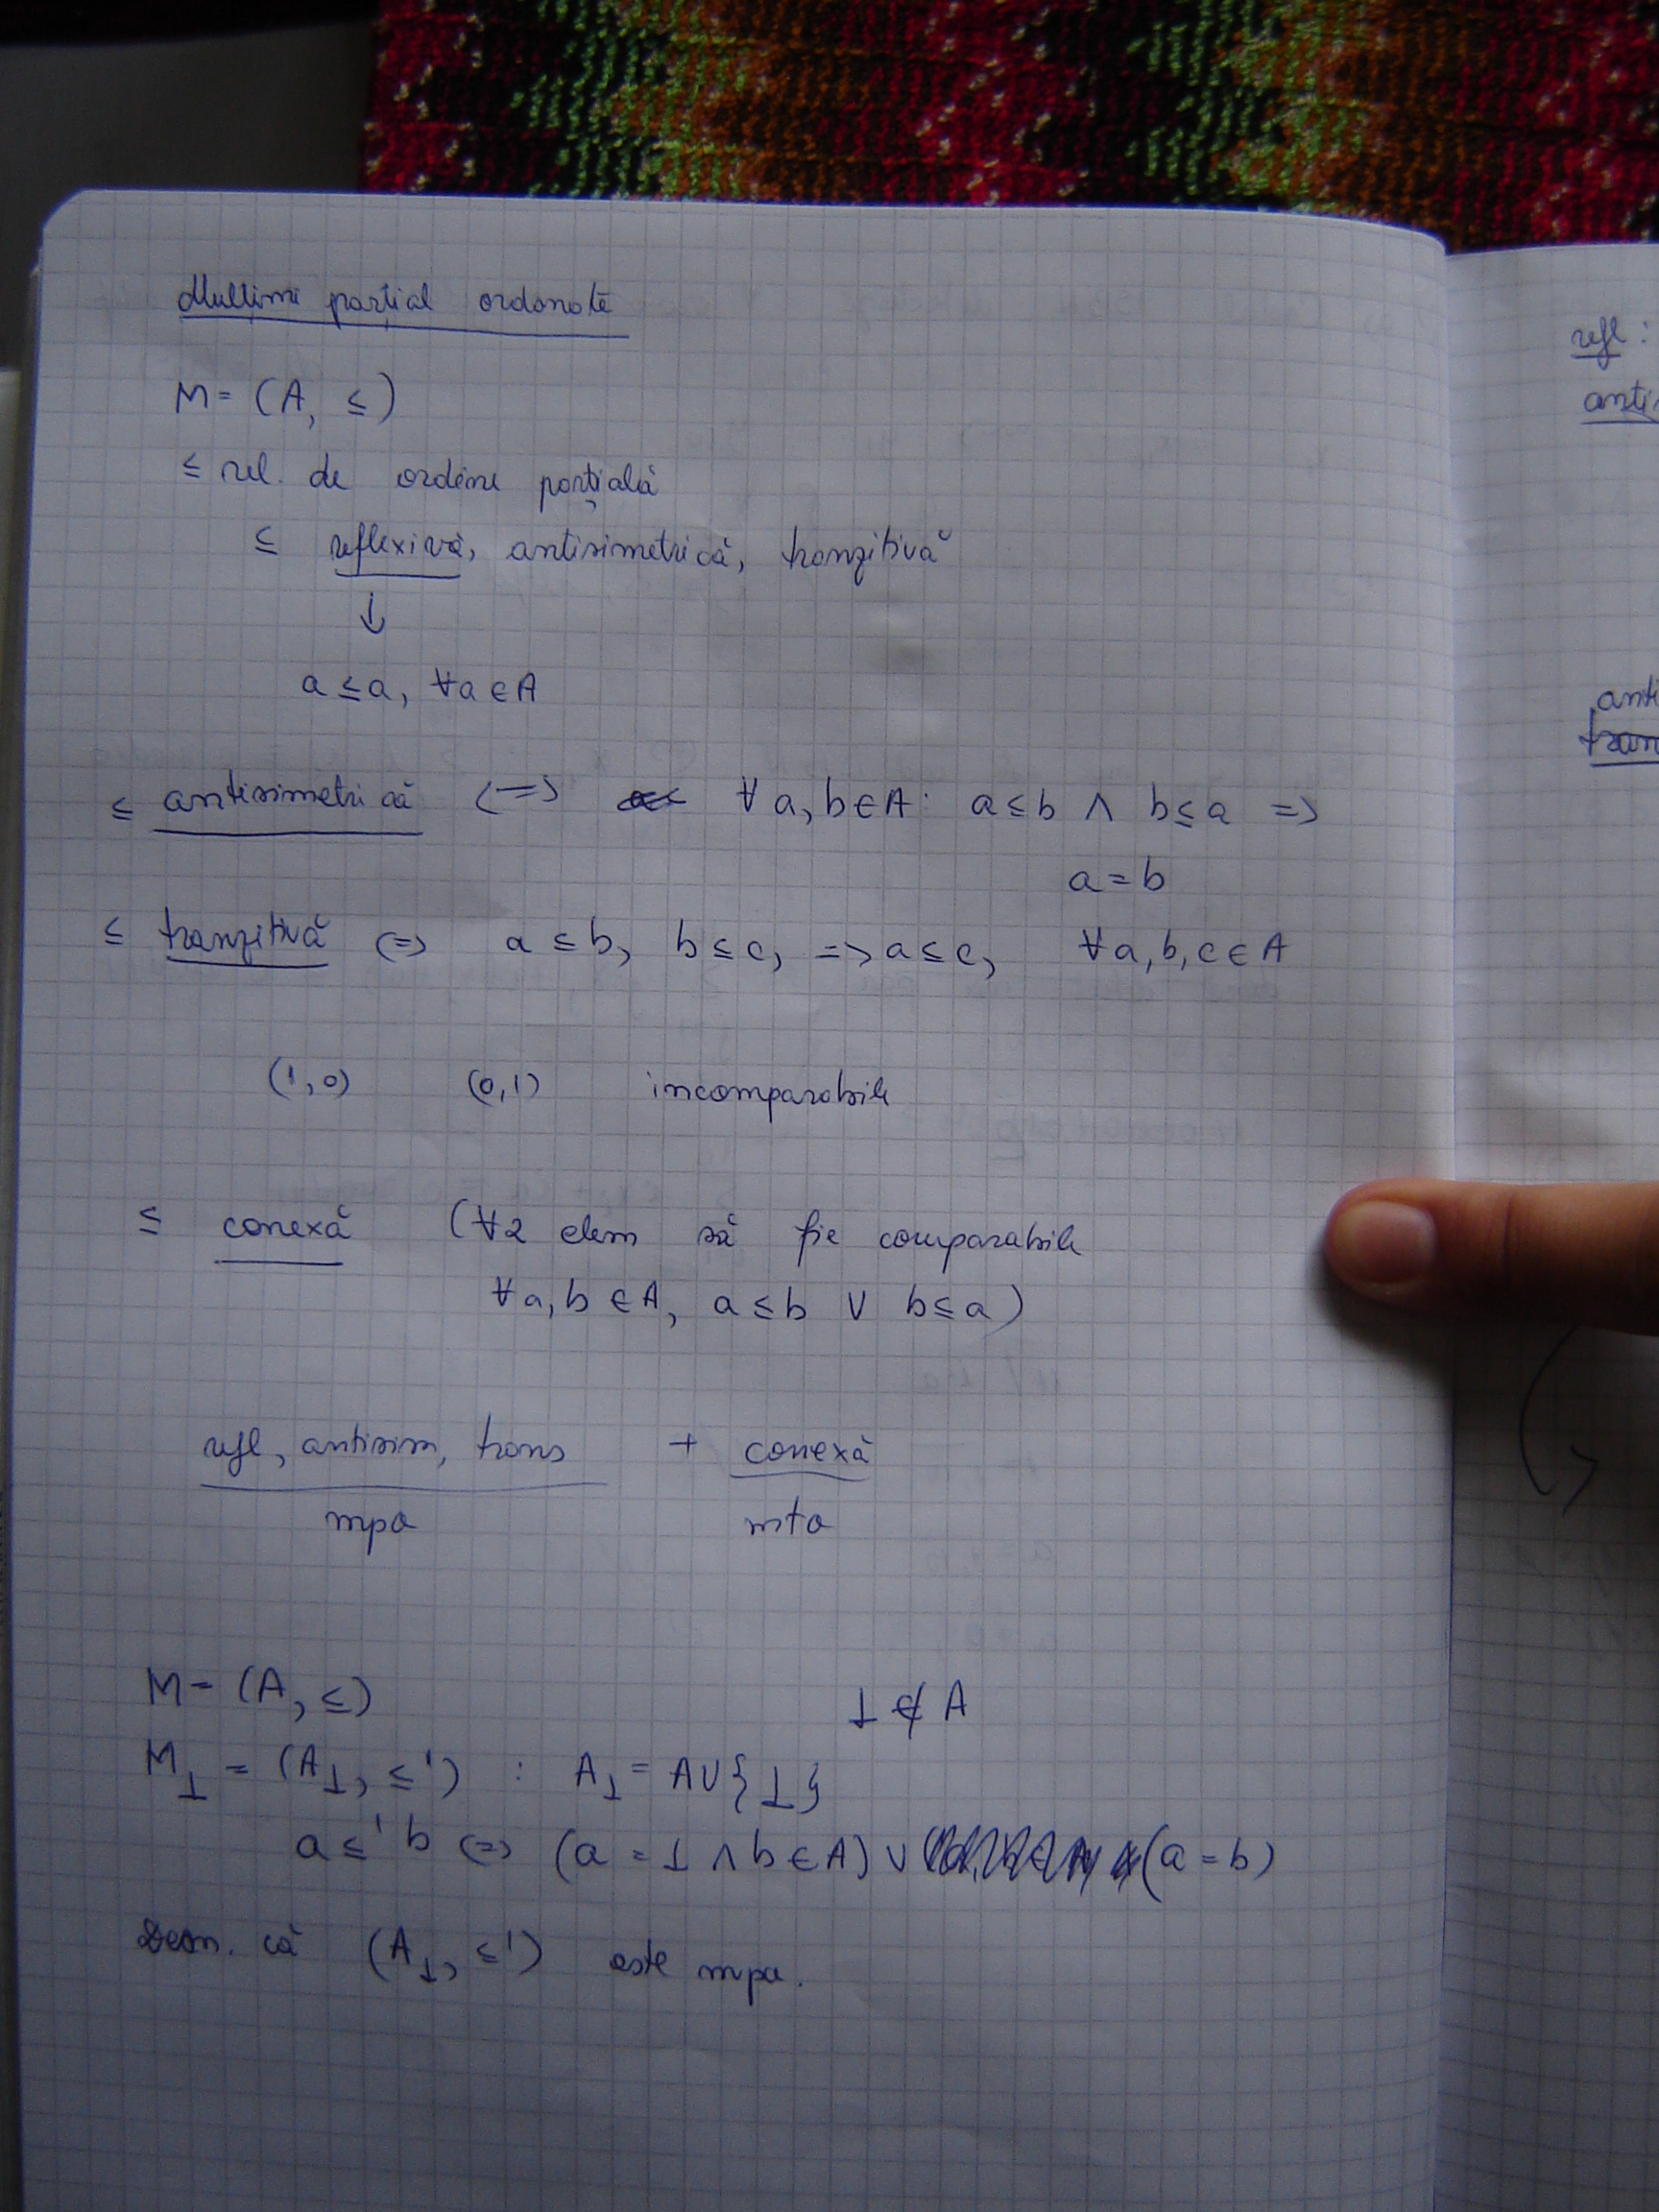 Mulțimi parțial ordonate
M = (A, ≤)
≤ rel. de ordine parțială
≤ reflexivă, antisimetrică, tranzitivă
↓
a ≤ a, ∀a ∈ A
≤ antisimetrică <=> ∀ a, b ∈ A : a ≤ b ∧ b ≤ a =>
a = b
≤ tranzitivă <=> a ≤ b, b ≤ c, => a ≤ c, ∀ a, b, c ∈ A
(1,0) (0,1) incomparabile
≤ conexă (∀2 elem să fie comparabile
∀a, b ∈ A, a ≤ b ∨ b ≤ a)
refl, antisim, trans + conexă
mpo mto
M = (A, ≤) ⊥ ∉ A
M⊥ = (A⊥, ≤') : A⊥ = A ∪ {⊥}
a ≤' b <=> (a = ⊥ ∧ b ∈ A) ∨ (a = b)
Dem. că (A⊥, ≤') este mpo.
refl :